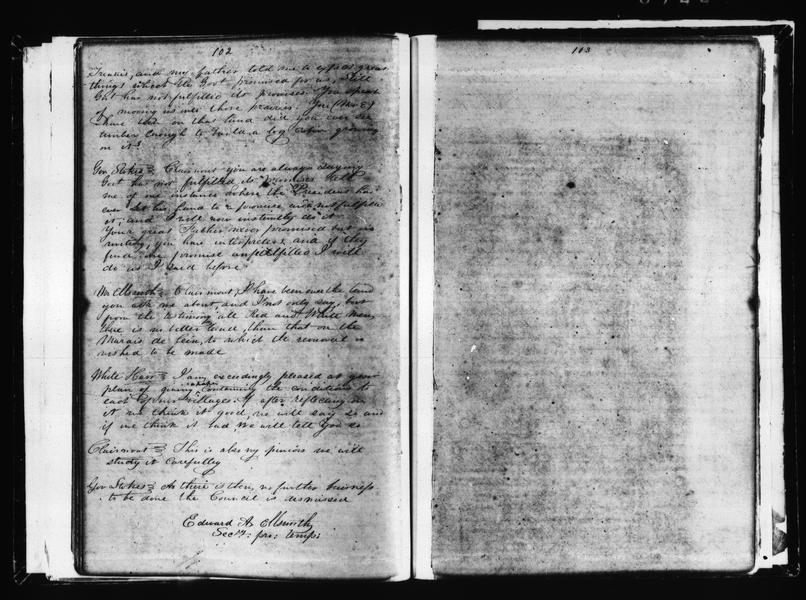 102
Treaties, and my father told me to expect great
things which the Govt promised for us, Still
Govt has not fulfilled its promises. You speak
of moving us over those prairies. You (Mr E)
have been on that land did you ever see
timber enough to build a log cabin growing
on it?
Gov Stokes Clairmont you are always saying
Govt has not fulfilled its promises tell
me of one instance where the President has
ever set his hand to a promise and not fulfilled
it, and I will now instantly do it
Your great Father never promised but in
writing, you have interpreters and if they
find one promise unfulfilled I will
do as I said before
Mr Ellsworth Clairmont, I have been over the land
you ask me about, and I not only say, but
from the testimony all Red and White men,
there is no better land, than that on the
Marais de Cein, to which the removal is
wished to be made
White Hair I am exceedingly pleased at your
plan of giving papers containing the conditions to
each of our villages. If after reflecting on
it we think it good, we will say so and
if we think it bad, we will tell you so
Clairmont This is also my we will
study it carefully
Gov Stokes As there is then, no further business
to be done the Council is dismissed
Edward A. Ellsworth
Secy: pro: temp:
103